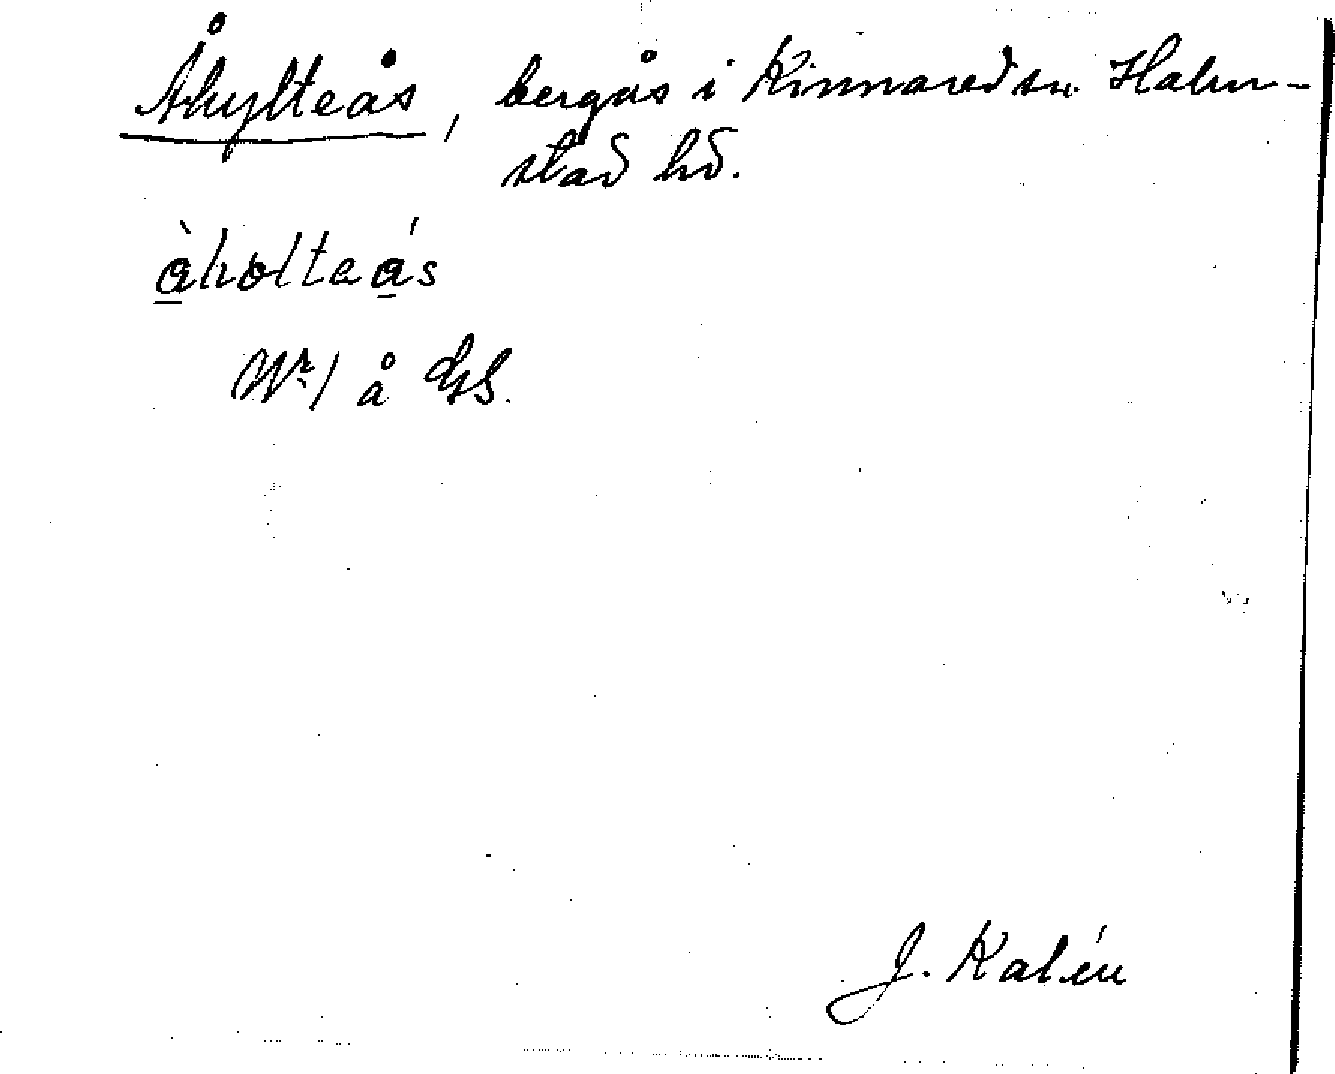 Åhylteås, bergås i Kinnared sn. Halm-
stad hd.
à̲holteá̲s
å GS.
J. Kalén